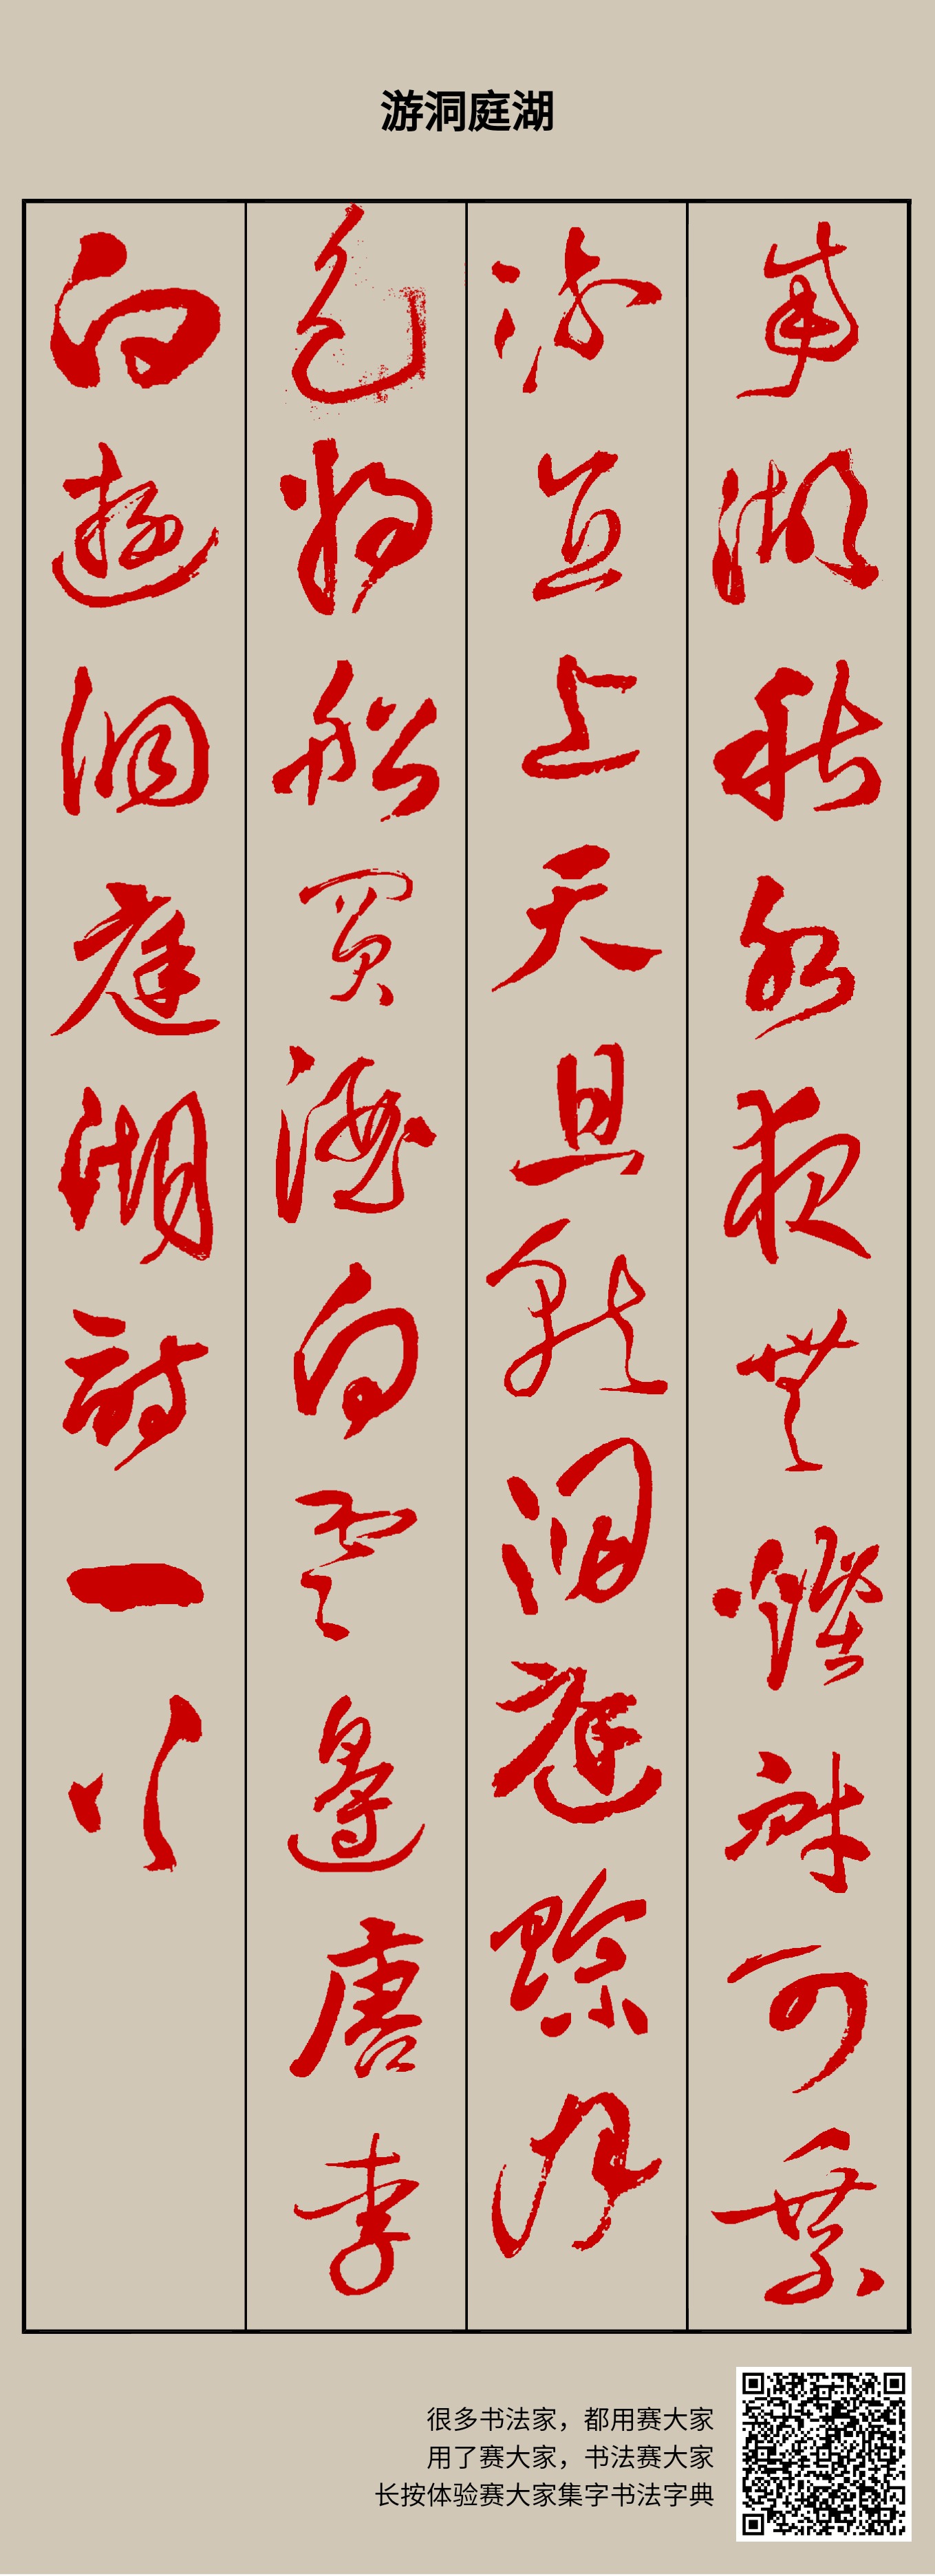 游洞庭湖
南湖秋水夜無煙耐可乘
流直上天且就洞庭賒月
色將船買酒白雲邊唐李
白遊洞庭湖詩一
很多书法家，都用赛大家
用了赛大家，书法赛大家
长按体验赛大家集字书法字典